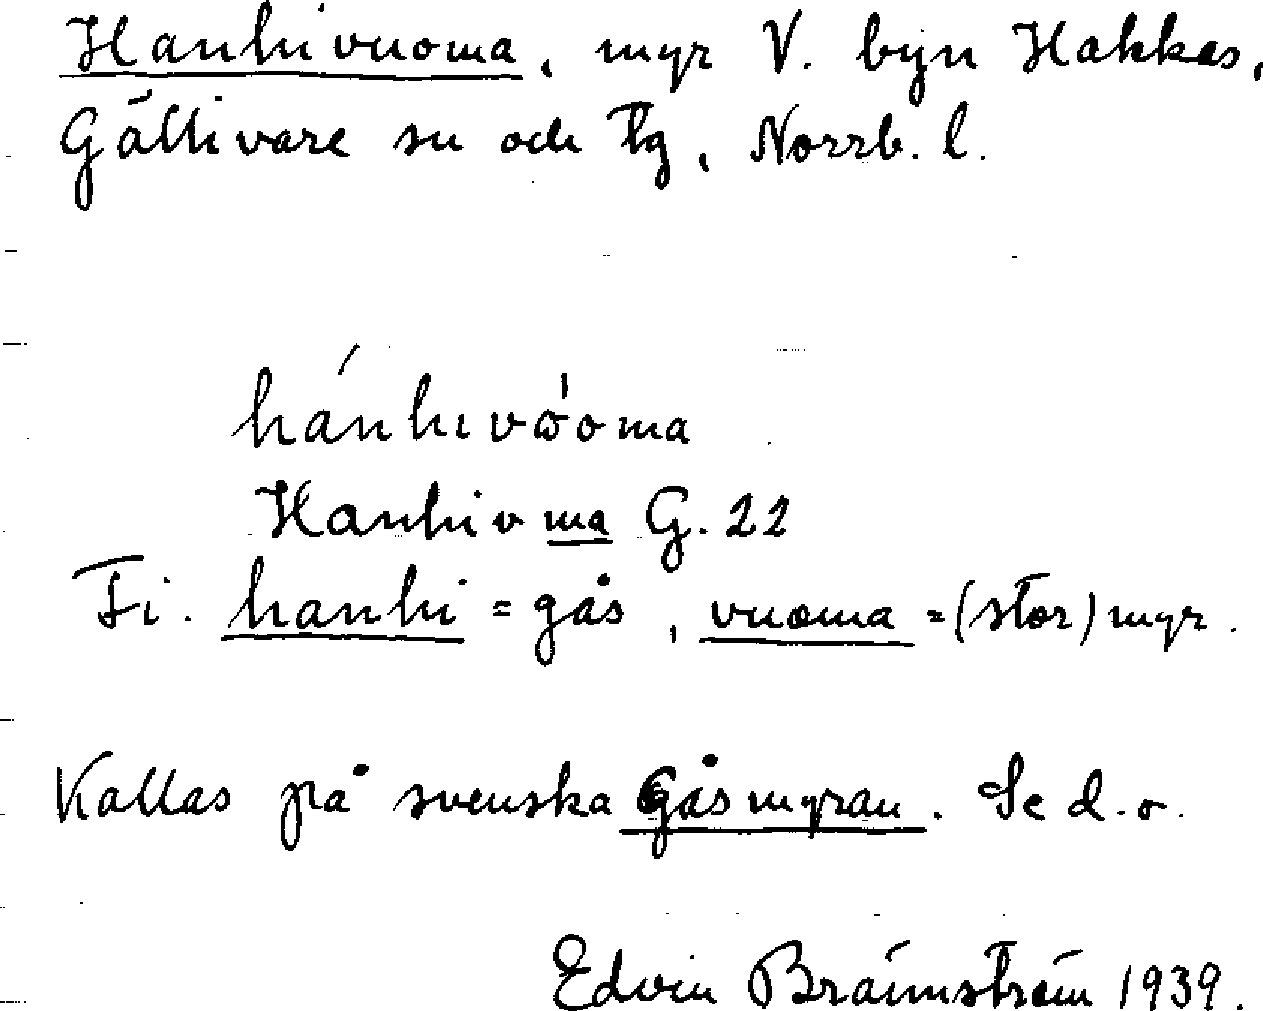 Hanhivuoma, myr V. byn Hakkas,
Gällivare sn och tg, Norrb. l.
hánhıvɷ́oma
Hanhivma G. 22
Fi. hanhi = gås, vuoma = (stor) myr.
Kallas på svenska Gåsmyran. Se d. o.
Edvin Brännström 1939.